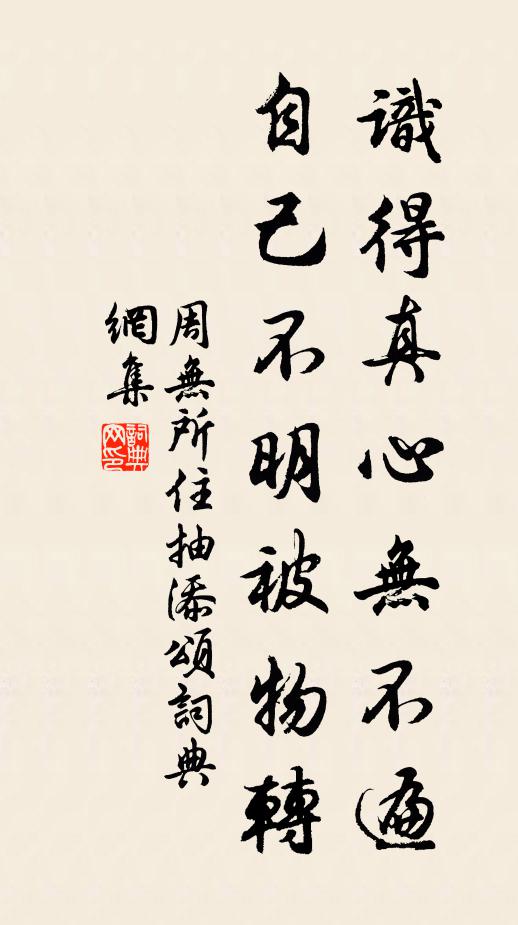 識得真心無不遍
自己不明被物轉
周無所住抽添頌詞典
網集
詞典
网印